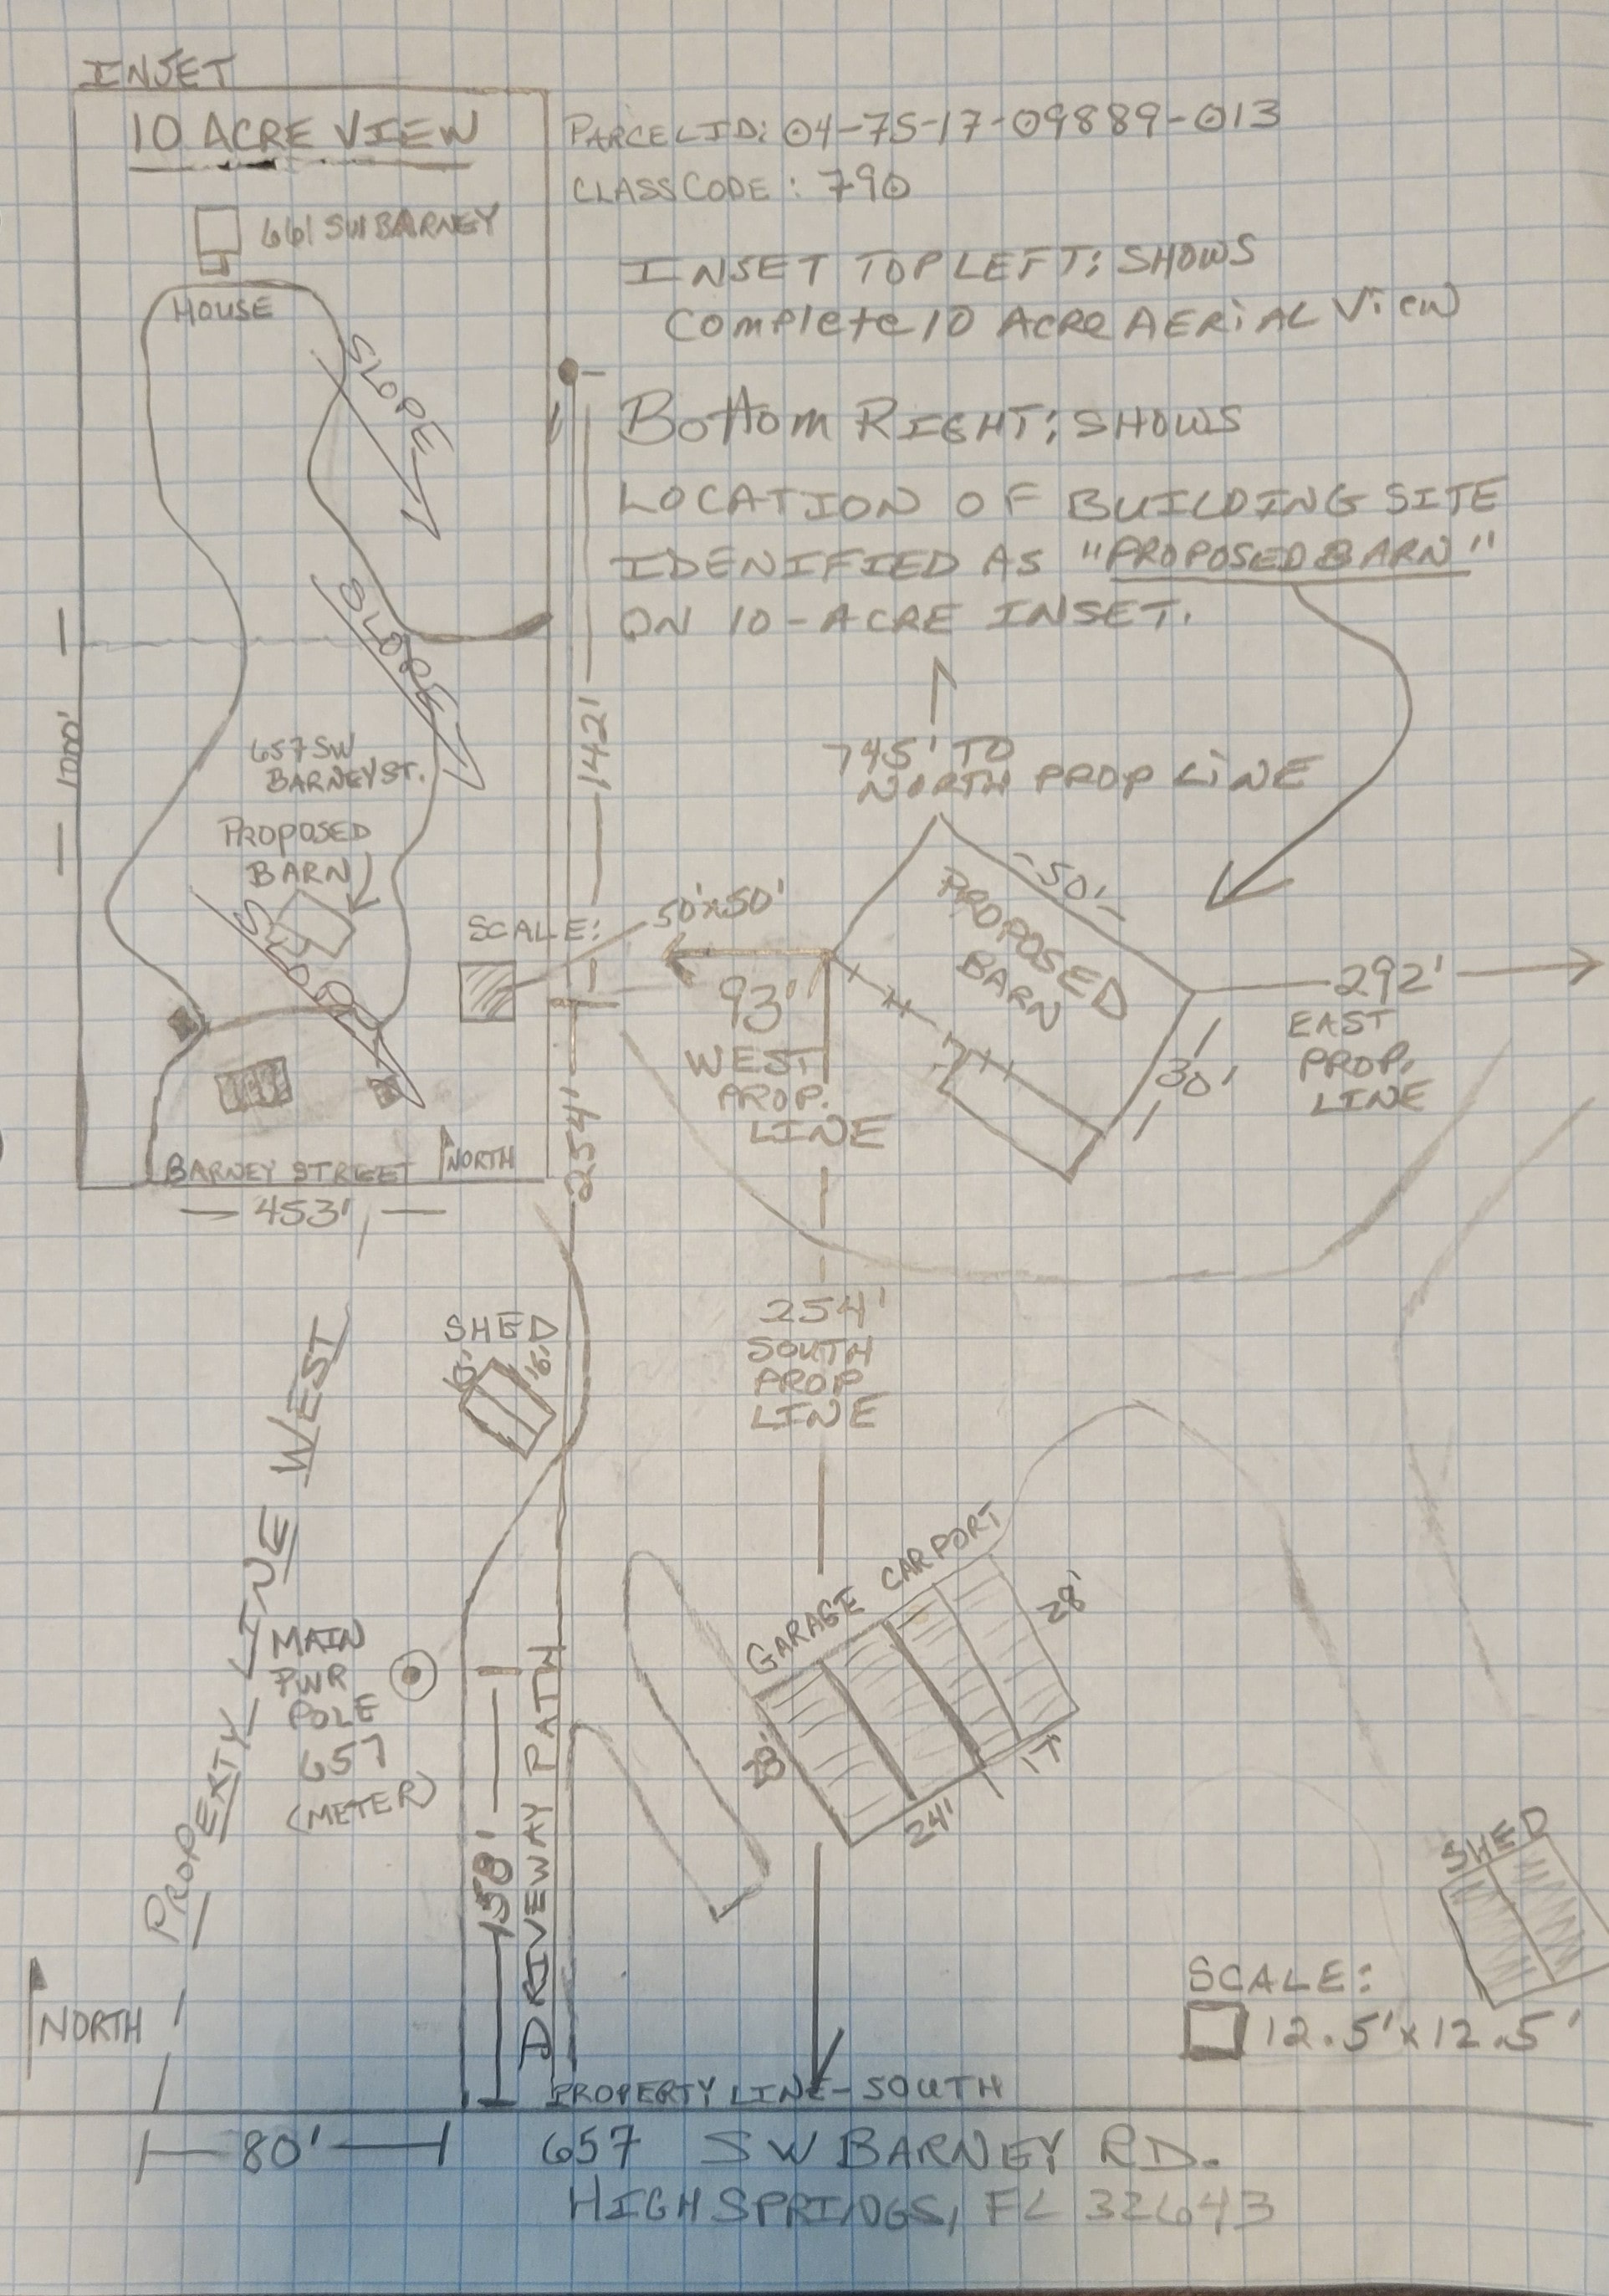 INSET
10 ACRE VIEW
661 SW BARNEY
HOUSE
SLOPE
SLOPE
1000'
657 SW
BARNEY ST.
PROPOSED
BARN
SLOPE
SCALE:
50'x50'
BARNEY STREET
NORTH
453'
PARCEL ID: 04-7S-17-09889-013
CLASS CODE: 790
INSET TOP LEFT: SHOWS
Complete 10 Acre AERIAL View
Bottom RIGHT: SHOWS
LOCATION OF BUILDING SITE
IDENIFIED AS "PROPOSED BARN"
ON 10-ACRE INSET.
142'
254'
745' TO
NORTH PROP LINE
50'
PROPOSED
BARN
30'
93'
WEST
PROP.
LINE
292'
EAST
PROP.
LINE
254'
SOUTH
PROP
LINE
SHED
16'
PROPERTY LINE WEST
MAIN
PWR
POLE
657
(METER)
158'
DRIVEWAY PATH
GARAGE CARPORT
28'
28'
24'
17
SHED
SCALE:
12.5' x 12.5'
NORTH
PROPERTY LINE - SOUTH
80'
657 SW BARNEY RD.
HIGH SPRINGS, FL 32643